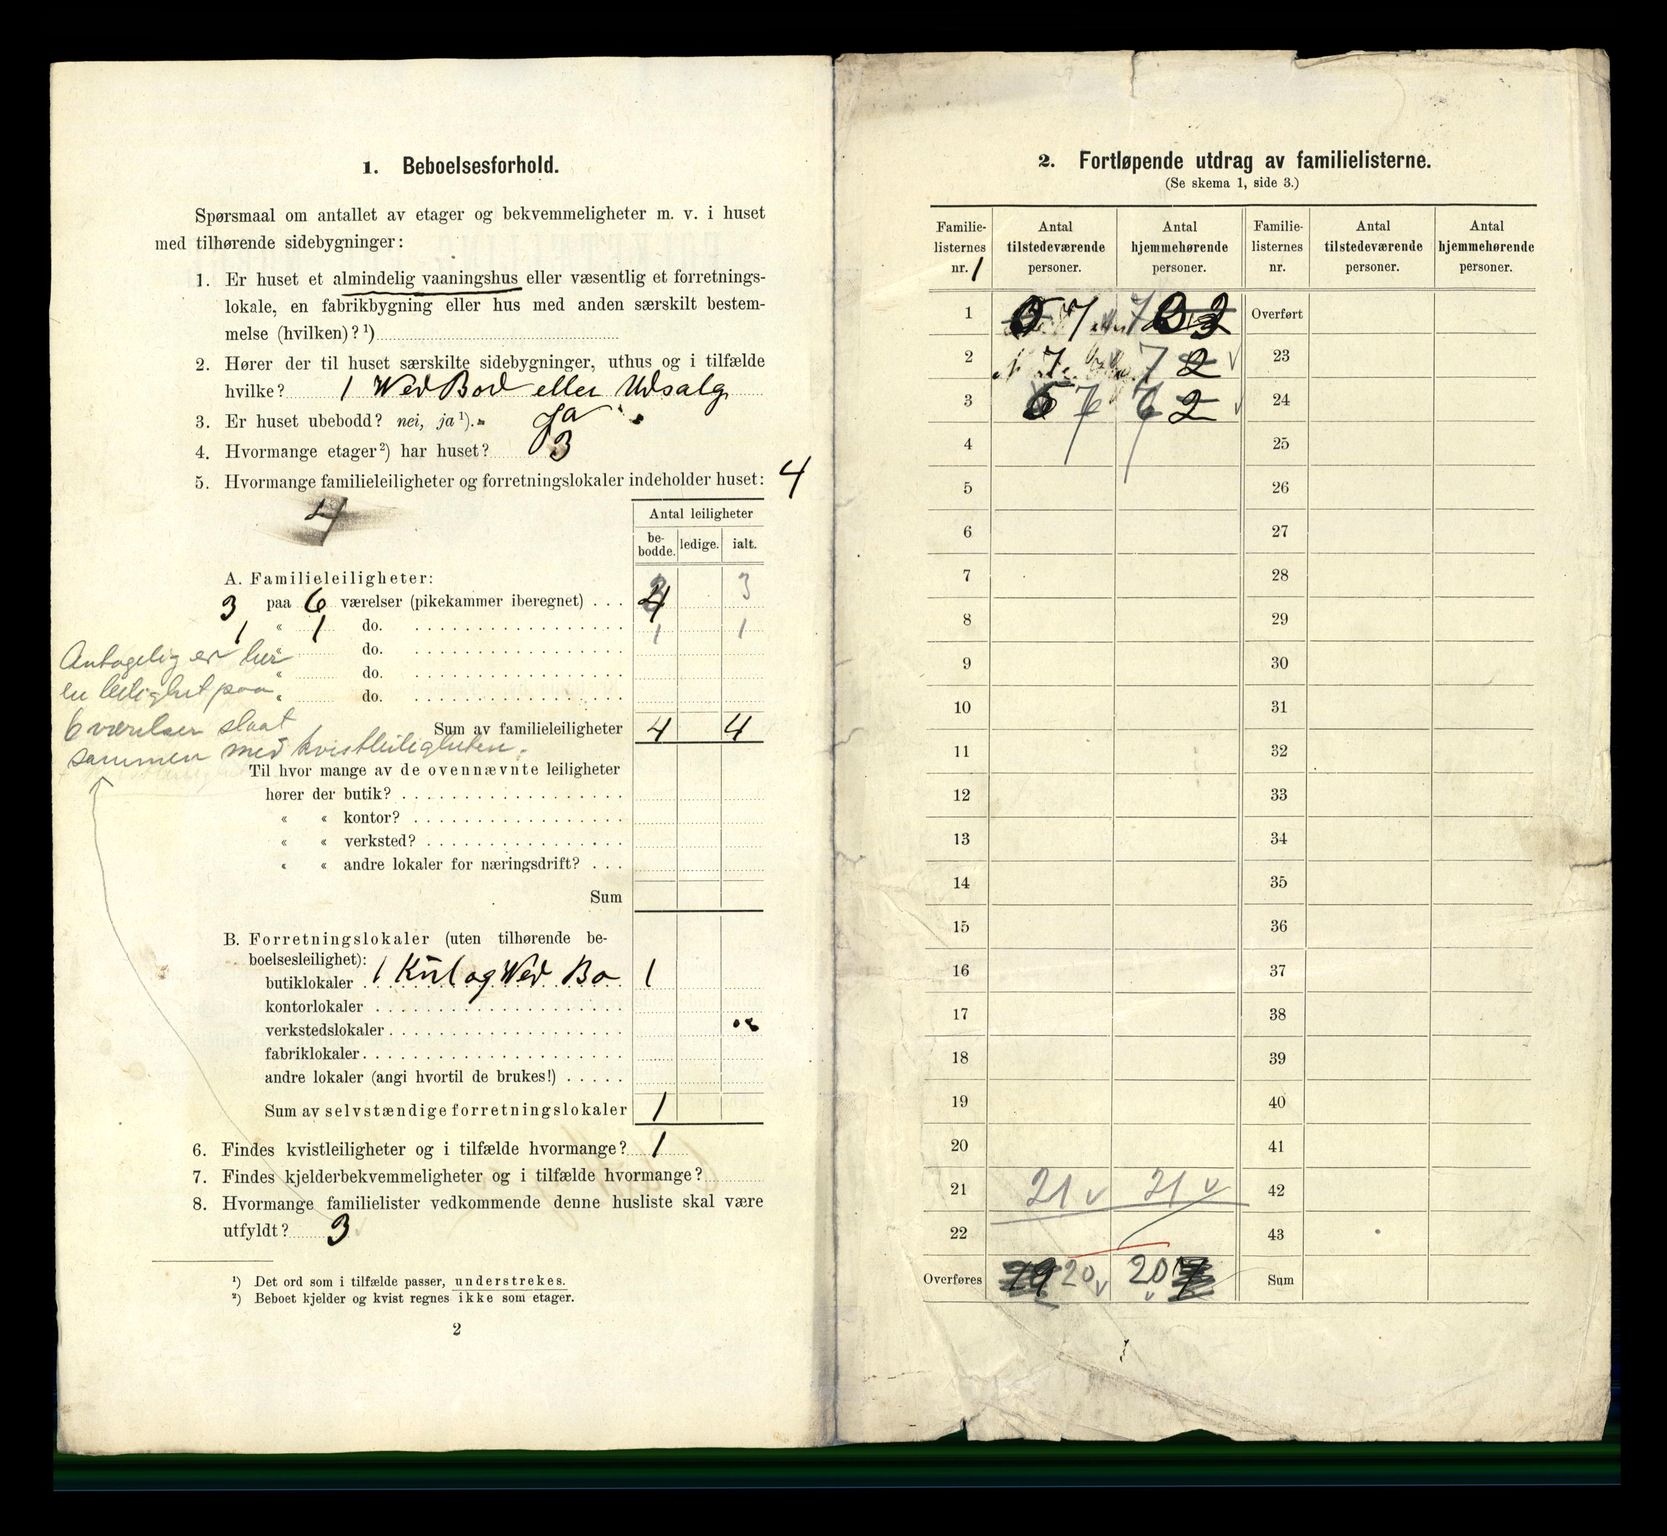 1. Beboelsesforhold.
Spørsmaal om antallet av etager og bekvemmeligheter m. v. i huset
med tilhørende sidebygninger:
1. Er huset et almindelig vaaningshus eller væsentlig et forretnings-
lokale, en fabrikbygning eller hus med anden særskilt bestem-
melse (hvilken)? ¹)
2. Hører der til huset særskilte sidebygninger, uthus og i tilfælde
hvilke? 1 Wed Bod eller Udsalg
3. Er huset ubebodd? nei, ja ¹). Ja
4. Hvormange etager ²) har huset? 3
5. Hvormange familieleiligheter og forretningslokaler indeholder huset: 4
4
Antal leiligheter
be-
bodde. ledige. ialt.
A. Familieleiligheter:
3 paa 6 værelser (pikekammer iberegnet) . . . 4 3
1 « 1 do. 1 1
« do.
« do.
« do.
Antagelig er her
en leilighet paa
6 værelser slaat
sammen med kvistleiligheten.
Sum av familieleiligheter 4 4
Til hvor mange av de ovennævnte leiligheter
hører der butik?
« « kontor?
« « verksted?
« « andre lokaler for næringsdrift?
Sum
B. Forretningslokaler (uten tilhørende be-
boelsesleilighet):
butiklokaler 1 Kul og Wed Bo 1
kontorlokaler
verkstedslokaler
fabriklokaler
andre lokaler (angi hvortil de brukes!)
Sum av selvstændige forretningslokaler 1
6. Findes kvistleiligheter og i tilfælde hvormange? 1
7. Findes kjelderbekvemmeligheter og i tilfælde hvormange?
8. Hvormange familielister vedkommende denne husliste skal være
utfyldt? 3
¹) Det ord som i tilfælde passer, understrekes.
²) Beboet kjelder og kvist regnes ikke som etager.
2
2. Fortløpende utdrag av familielisterne.
(Se skema 1, side 3.)
Familie-
listernes
nr. 1
Antal
tilstedeværende
personer.
Antal
hjemmehørende
personer.
Familie-
listernes
nr.
Antal
tilstedeværende
personer.
Antal
hjemmehørende
personer.
1 7 7 Overført
2 7 7 2 23
3 6 7 6 2 24
4 25
5 26
6 27
7 28
8 29
9 30
10 31
11 32
12 33
13 34
14 35
15 36
16 37
17 38
18 39
19 40
20 41
21 21 v 21 v 42
22 43
Overføres 19 20 v 20 v Sum